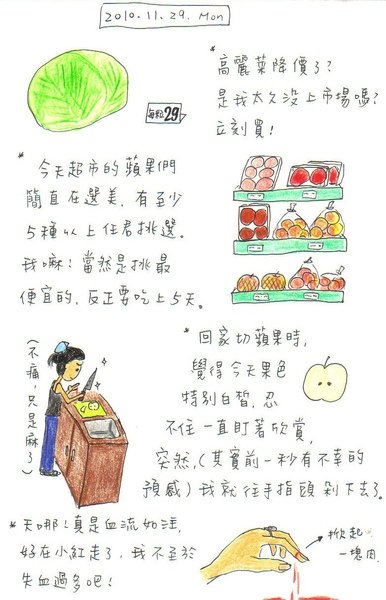 2010.11.29. Mon
* 高麗菜降價了?
是我太久沒上市場嗎?
立刻買!
每粒29
* 今天超市的蘋果們
簡直在選美,有至少
5種以上任君挑選。
我嘛!當然是挑最
便宜的,反正要吃上5天。
* 回家切蘋果時,
覺得今天果色
特別白皙,忍
不住一直盯著欣賞,
突然,(其實前一秒有不幸的
預感)我就往手指頭剁下去了。
(不痛,只是麻了)
* 天哪!真是血流如注,
好在小紅走了,我不至於
失血過多吧!
掀起
一塊肉.